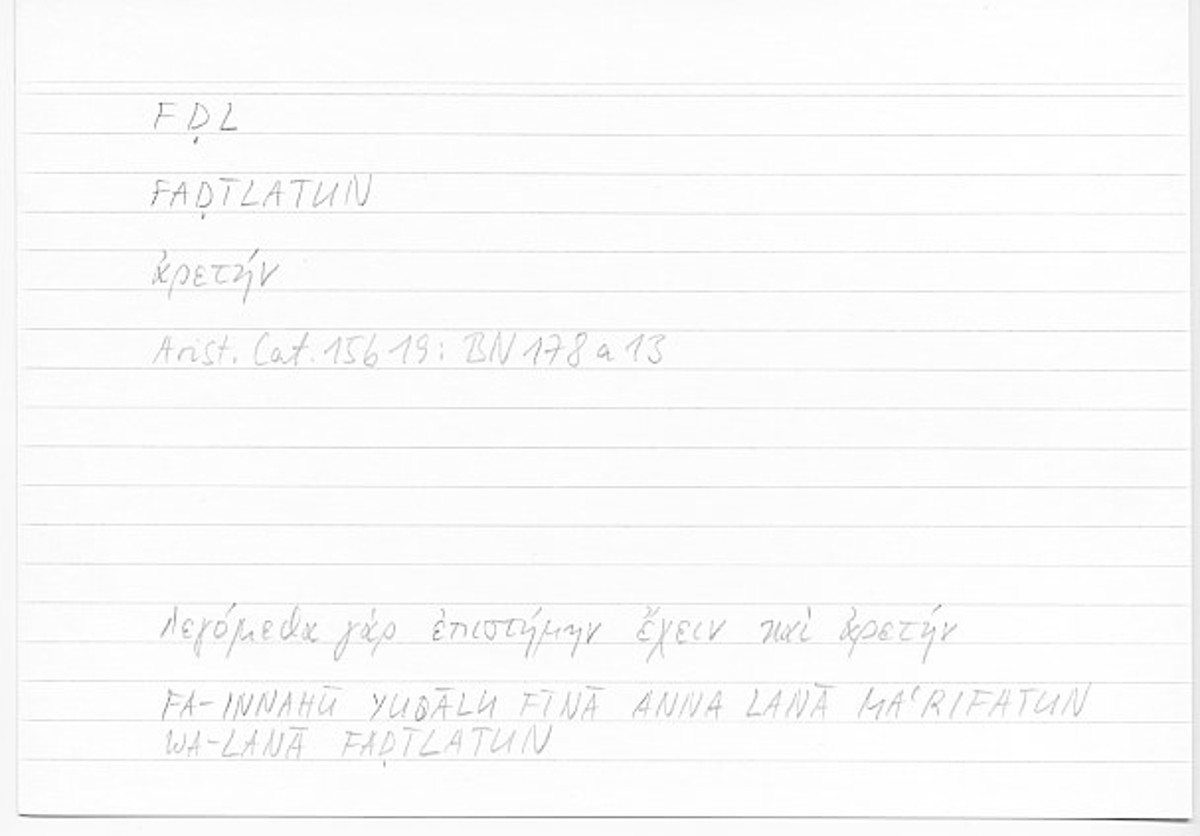 FḌL
FAḌĪLATUN
ἀρετήν
Arist. Cat. 15b19: BN 178a13
λεγόμεθα γὰρ ἐπιστήμην ἔχειν καὶ ἀρετήν
FA-INNAHŪ YUQĀLU FĪNĀ ANNA LANĀ MAʿRIFATUN
WA-LANĀ FAḌĪLATUN